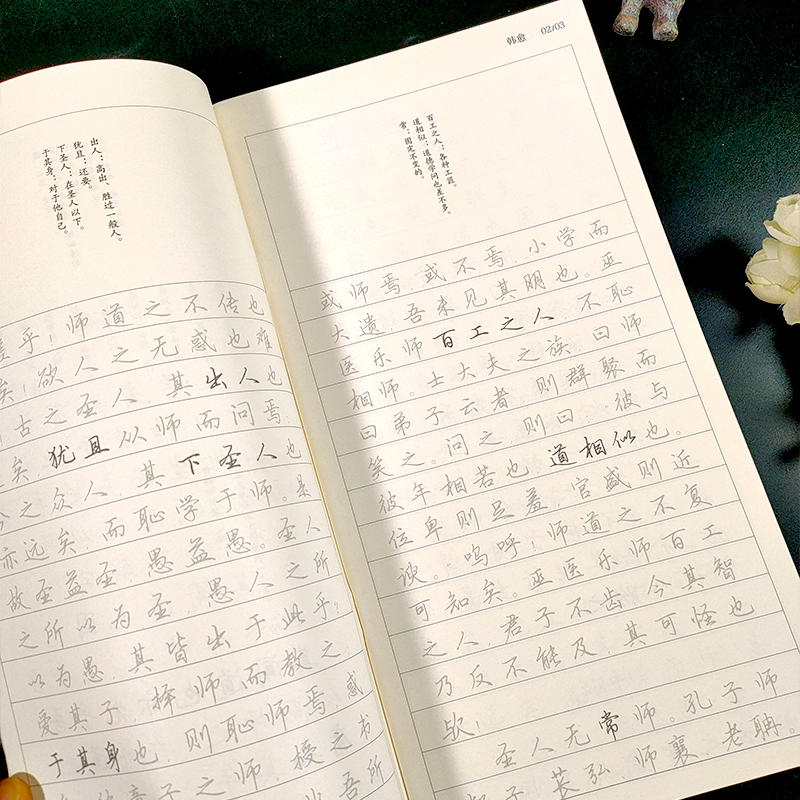 出人：高出、胜过一般人。
犹且：还要。
下圣人：在圣人以下。
于其身：对于他自己。
乎！师道之不传也
矣！欲人之无惑也难
古之圣人，其出人也
矣，犹且从师而问焉。
之众人，其下圣人也
亦远矣，而耻学于师。是
故圣益圣，愚益愚。圣人
之所以为圣，愚人之所
以为愚，其皆出于此乎？
爱其子，择师而教之，
于其身也，则耻师焉，惑
童子之师，授之书
吾所
韩愈 02/03
百工之人：各种工匠。
道相似：道德学问也差不多。
常：固定不变的。
或师焉，或不焉，小学而
大遗，吾未见其明也。巫
医乐师百工之人，不耻
相师。士大夫之族，曰师
曰弟子云者，则群聚而
笑之。问之，则曰：彼与
彼年相若也，道相似也。
位卑则足羞，官盛则近
谀。呜呼！师道之不复
可知矣。巫医乐师百工
之人，君子不齿，今其智
乃反不能及，其可怪也
欤！
圣人无常师。孔子师
子、苌弘、师襄、老聃。